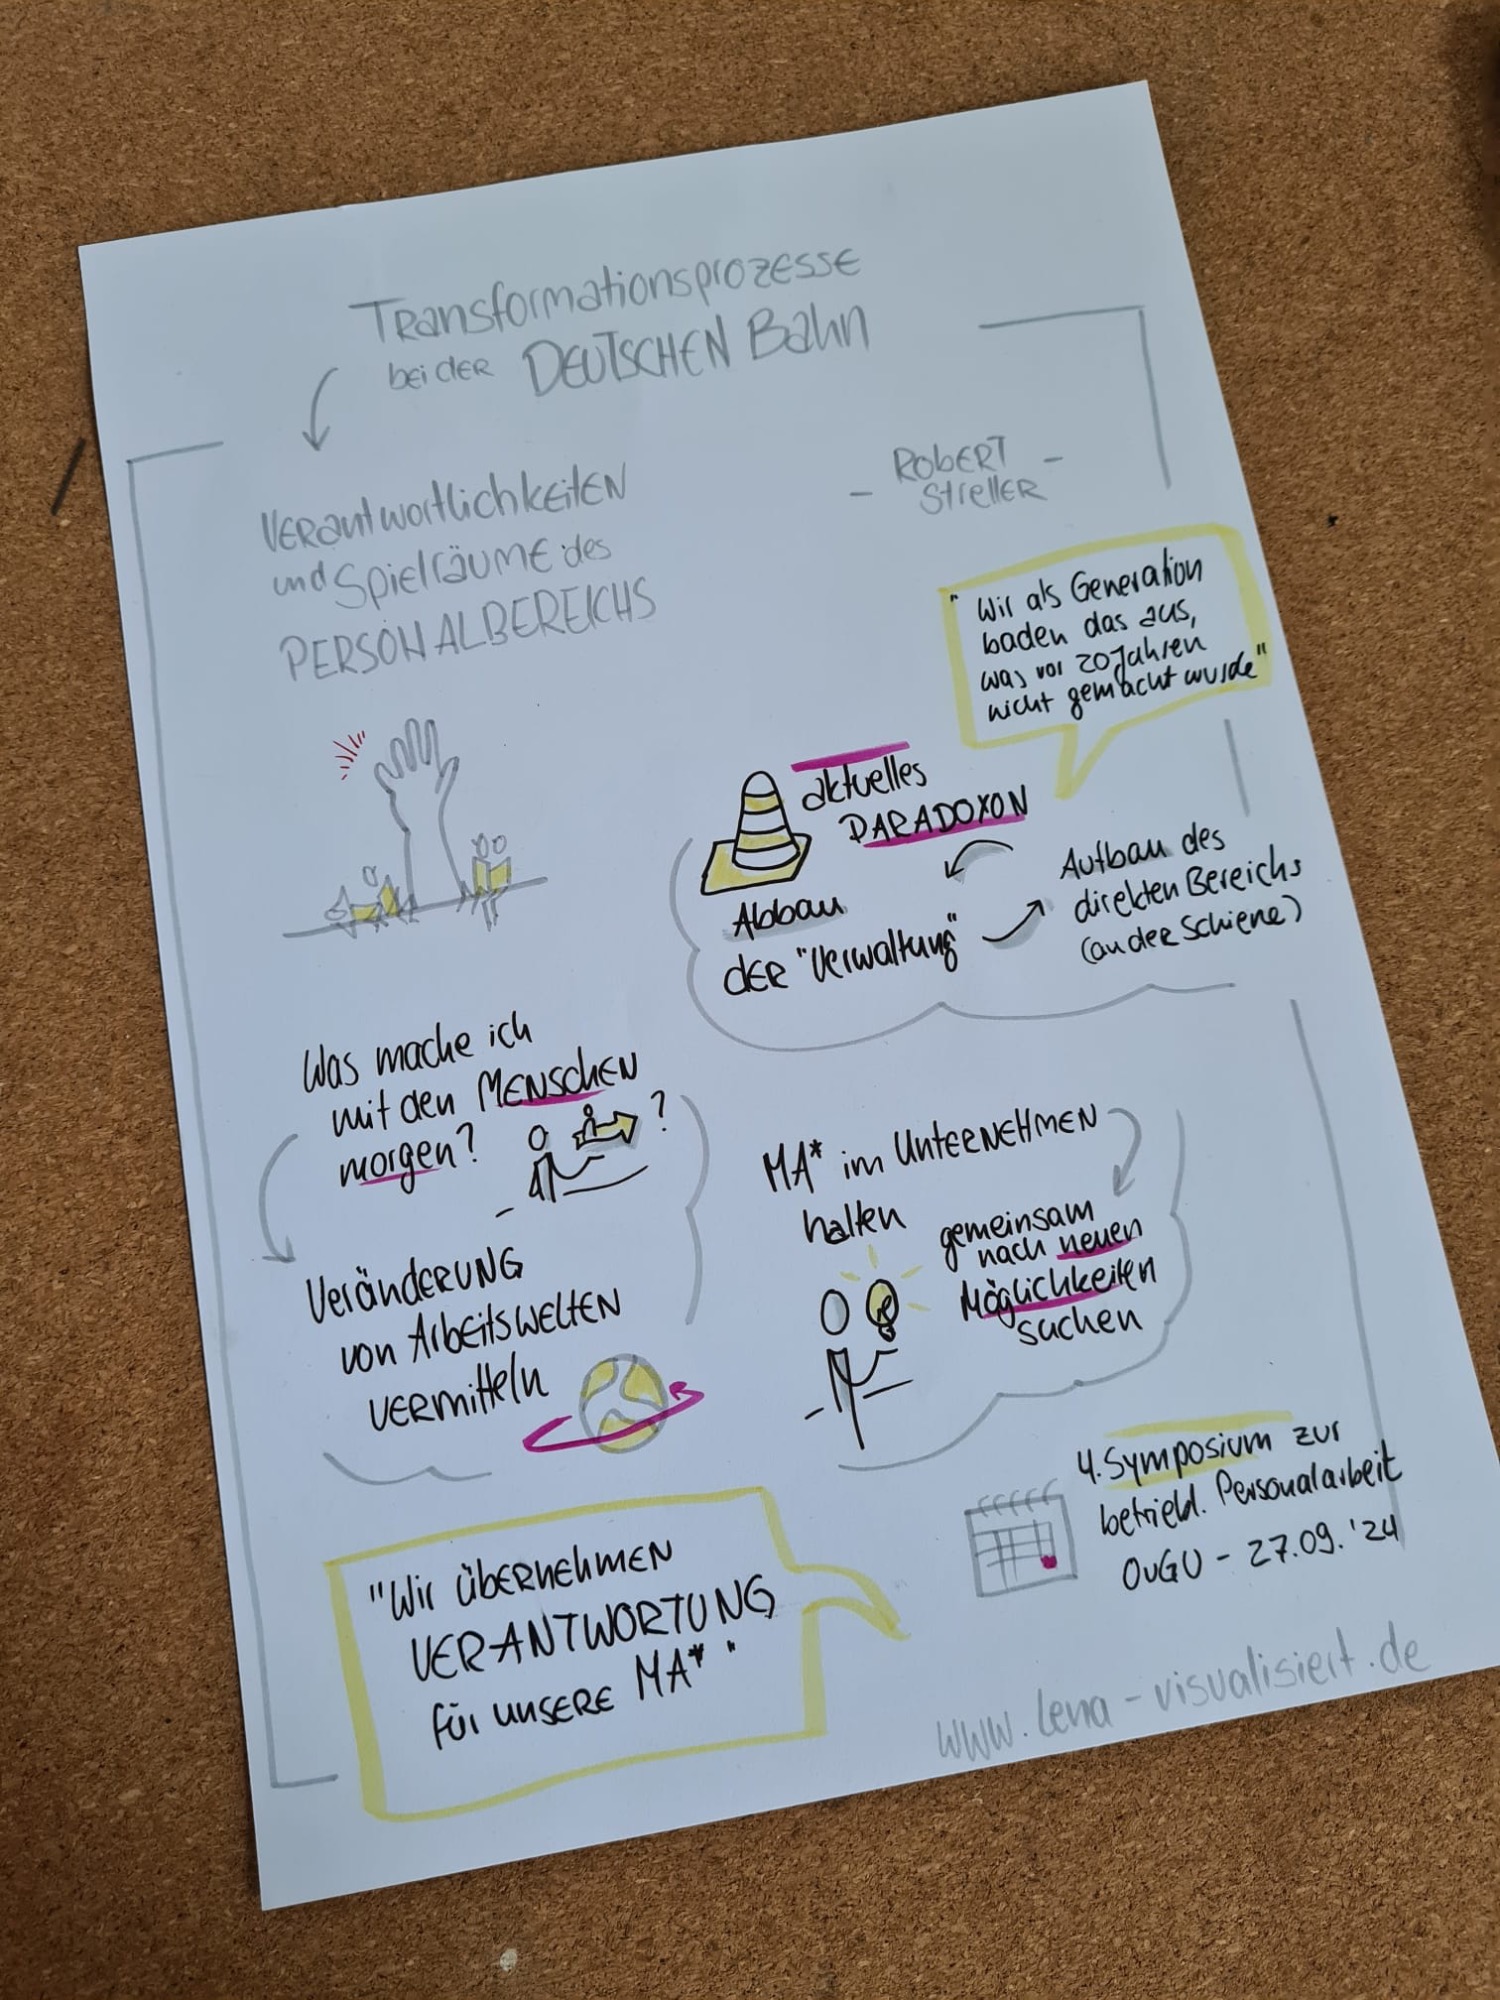 Transformationsprozesse
bei der DEUTSCHEN Bahn
Verantwortlichkeiten
und Spielräume des
PERSONALBEREICHS
- Robert -
Streller
"Wir als Generation
baden das aus,
was vor 20 Jahren
nicht gemacht wurde"
aktuelles
PARADOXON
Abbau
DER "Verwaltung"
Aufbau des
direkten Bereichs
(an der Schiene)
Was mache ich
mit den MENSCHEN
morgen?
?
Veränderung
von Arbeitswelten
vermitteln
MA* im Unternehmen
halten
gemeinsam
nach neuen
Möglichkeiten
suchen
"Wir übernehmen
VERANTWORTUNG
für unsere MA*"
4. Symposium zur
betriebl. Personalarbeit
OvGU - 27.09.'24
www.lena-visualisiert.de